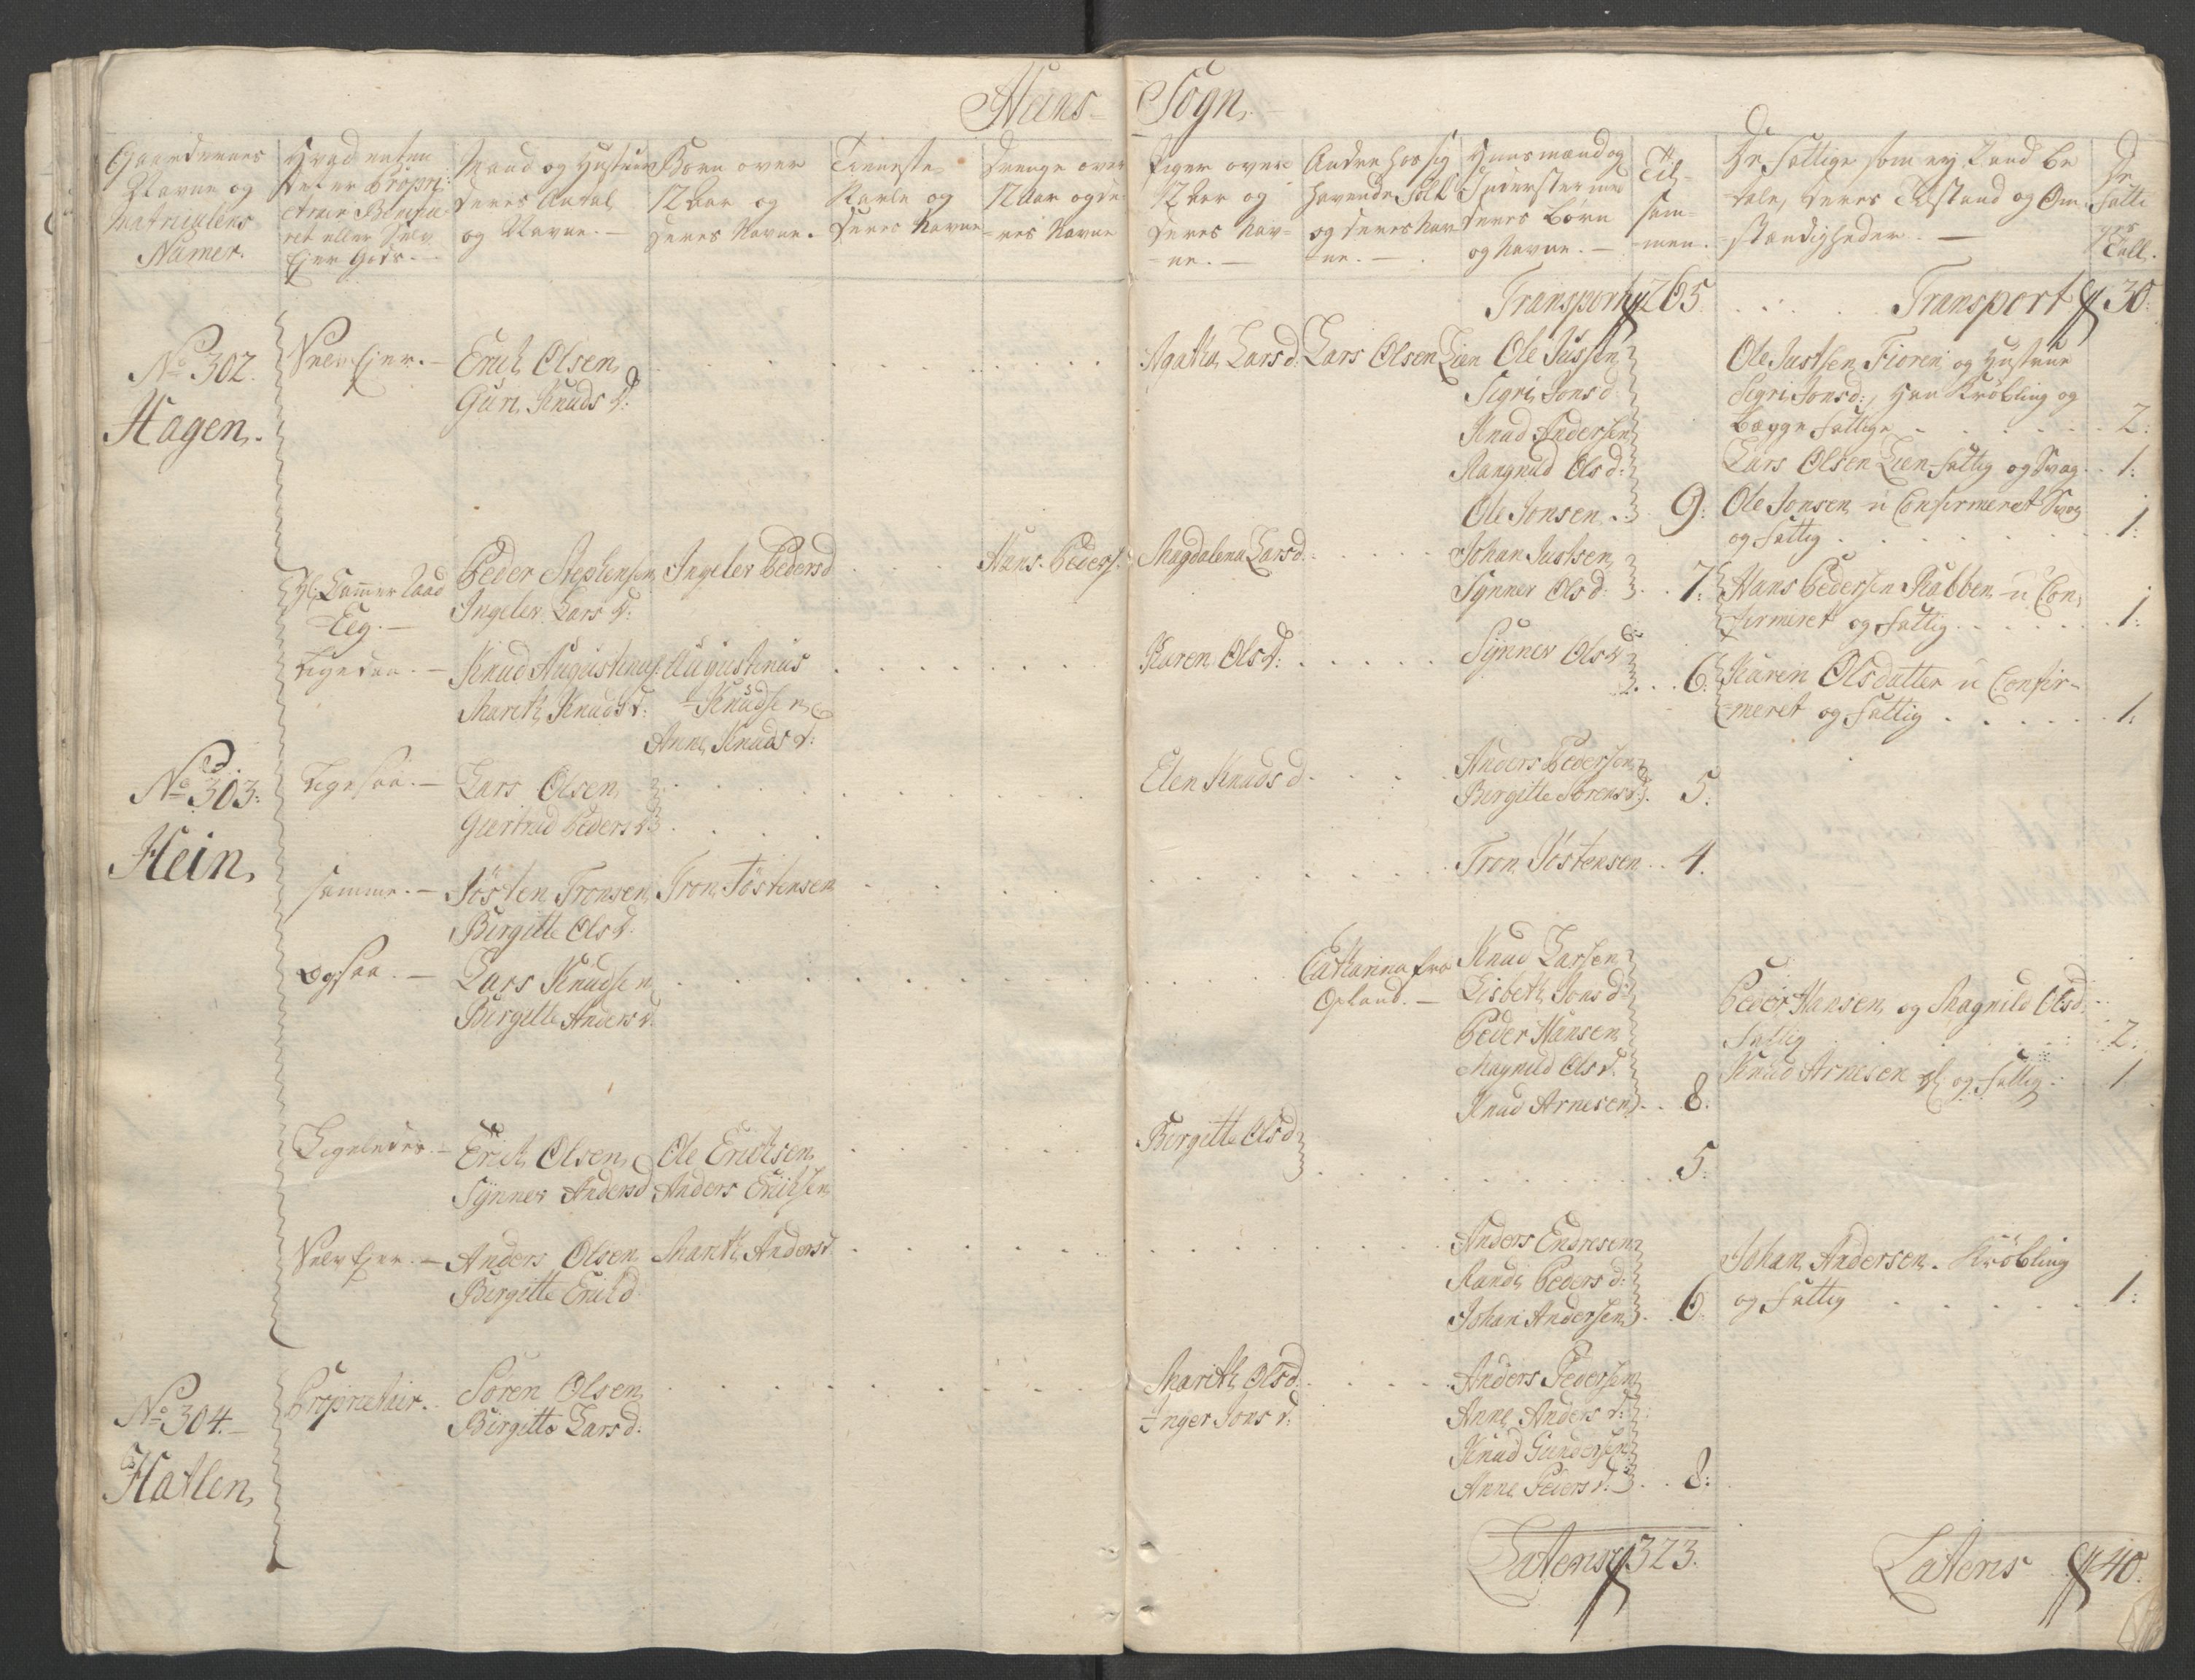 Heens Sogn.
Gaardenes
Navne og
Matriculens
Numer.
Hvad enten
det er Propri-
etair Benefice-
ret eller Selv
Ejer Gods.
Mand og Hustrue
deres Antal
og Navne. —
Børn over
12 Aar og
deres Navne.
Tieneste-
Karle og
deres Navne
Drenge over
12 Aar og de-
res Navne
Piger over
12 Aar og
deres Nav-
ne. —
Andre hos sig
havende Folk
og deres Nav-
ne. —
Huusmænd og
Inderster med
deres Børn
og Navne. —
Til-
sam-
men.
De Fattige som ej kand be
tale, deres Tilstand og Om-
stændigheder. —
De
Fatti
ges
Tall.
Transport 265.
Transport 30:
No 302.
Hagen.
Selv Ejer. —
Erich Olsen
Guri Knuds D:
Agatha Lars d:
Lars Olsen Lien
Ole Justsen
Sigri Jons d:
Knud Andersen
Rangnild Ols d:
Ole Jonsen
9:
Ole Justsen Fioren og Hustrue
Sigri Jonsd:, Hun Krøbling og
begge fattige 2:
Lars Olsen Lien fattig og Svag 1:
Ole Jonsen u Confirmeret Svag
og fattig 1:
Eeg. —
Peder Stephensen
Ingeler Lars D:
Ingeler Pedersd
Hans Peders.
Magdalena Larsd:
Johan Justsen
Synner Ols d:
7:
Hans Pedersen Rabben u Con-
firmeret og fattig 1:
Ligedan. —
Knud Augustinus.
Marith Knuds D:
Augustinus
Knudsen
Anne Knuds D:
Karen Ols D:
Synner Ols D
6:
Karen Olsdatter u Confir-
meret og fattig 1:
No 303:
Hein
Ligesaa. —
Lars Olsen
Giertrud Peders D:
Elen Knuds d
Anders Pedersen
Bergitte Sørens d:
5:
Samme. —
Jösten Tronsen
Birgitte Ols D.
Tron Jöstensen
Tron Jöstensen 4.
Ogsaa. —
Lars Knudsen
Birgitte Anders D.
Catharina fra
Opland. —
Knud Larsen
Lisbeth Jons d:
Peder Hansen
Magnild Ols D.
Knud Arnesen
8:
Peder Hansen og Magnild Olsd:
fattig 2:
Knud Arnesen gl og fattig: 1
Ligeledes. —
Erich Olsen
Synner Andersd
Ole Erichsen
Anders Erichsen
Bergitte Olsd
5:
Selv Ejer. —
Anders Olsen
Birgitte Erich d
Marith Andersd
Anders Endresen
Randi Peders d:
Johan Andersen
6:
Johan Andersen. Krøbling
og fattig 1:
No 304. —
Hatlen
Proprietair.
Søren Olsen
Birgitte Lars d:
Marith Olsd:
Inger Jons d:
Anders Pedersen
Anne Anders d:
Knud Gundersen
Anne Peders d:
8:
Lateris 323.
Lateris 40.